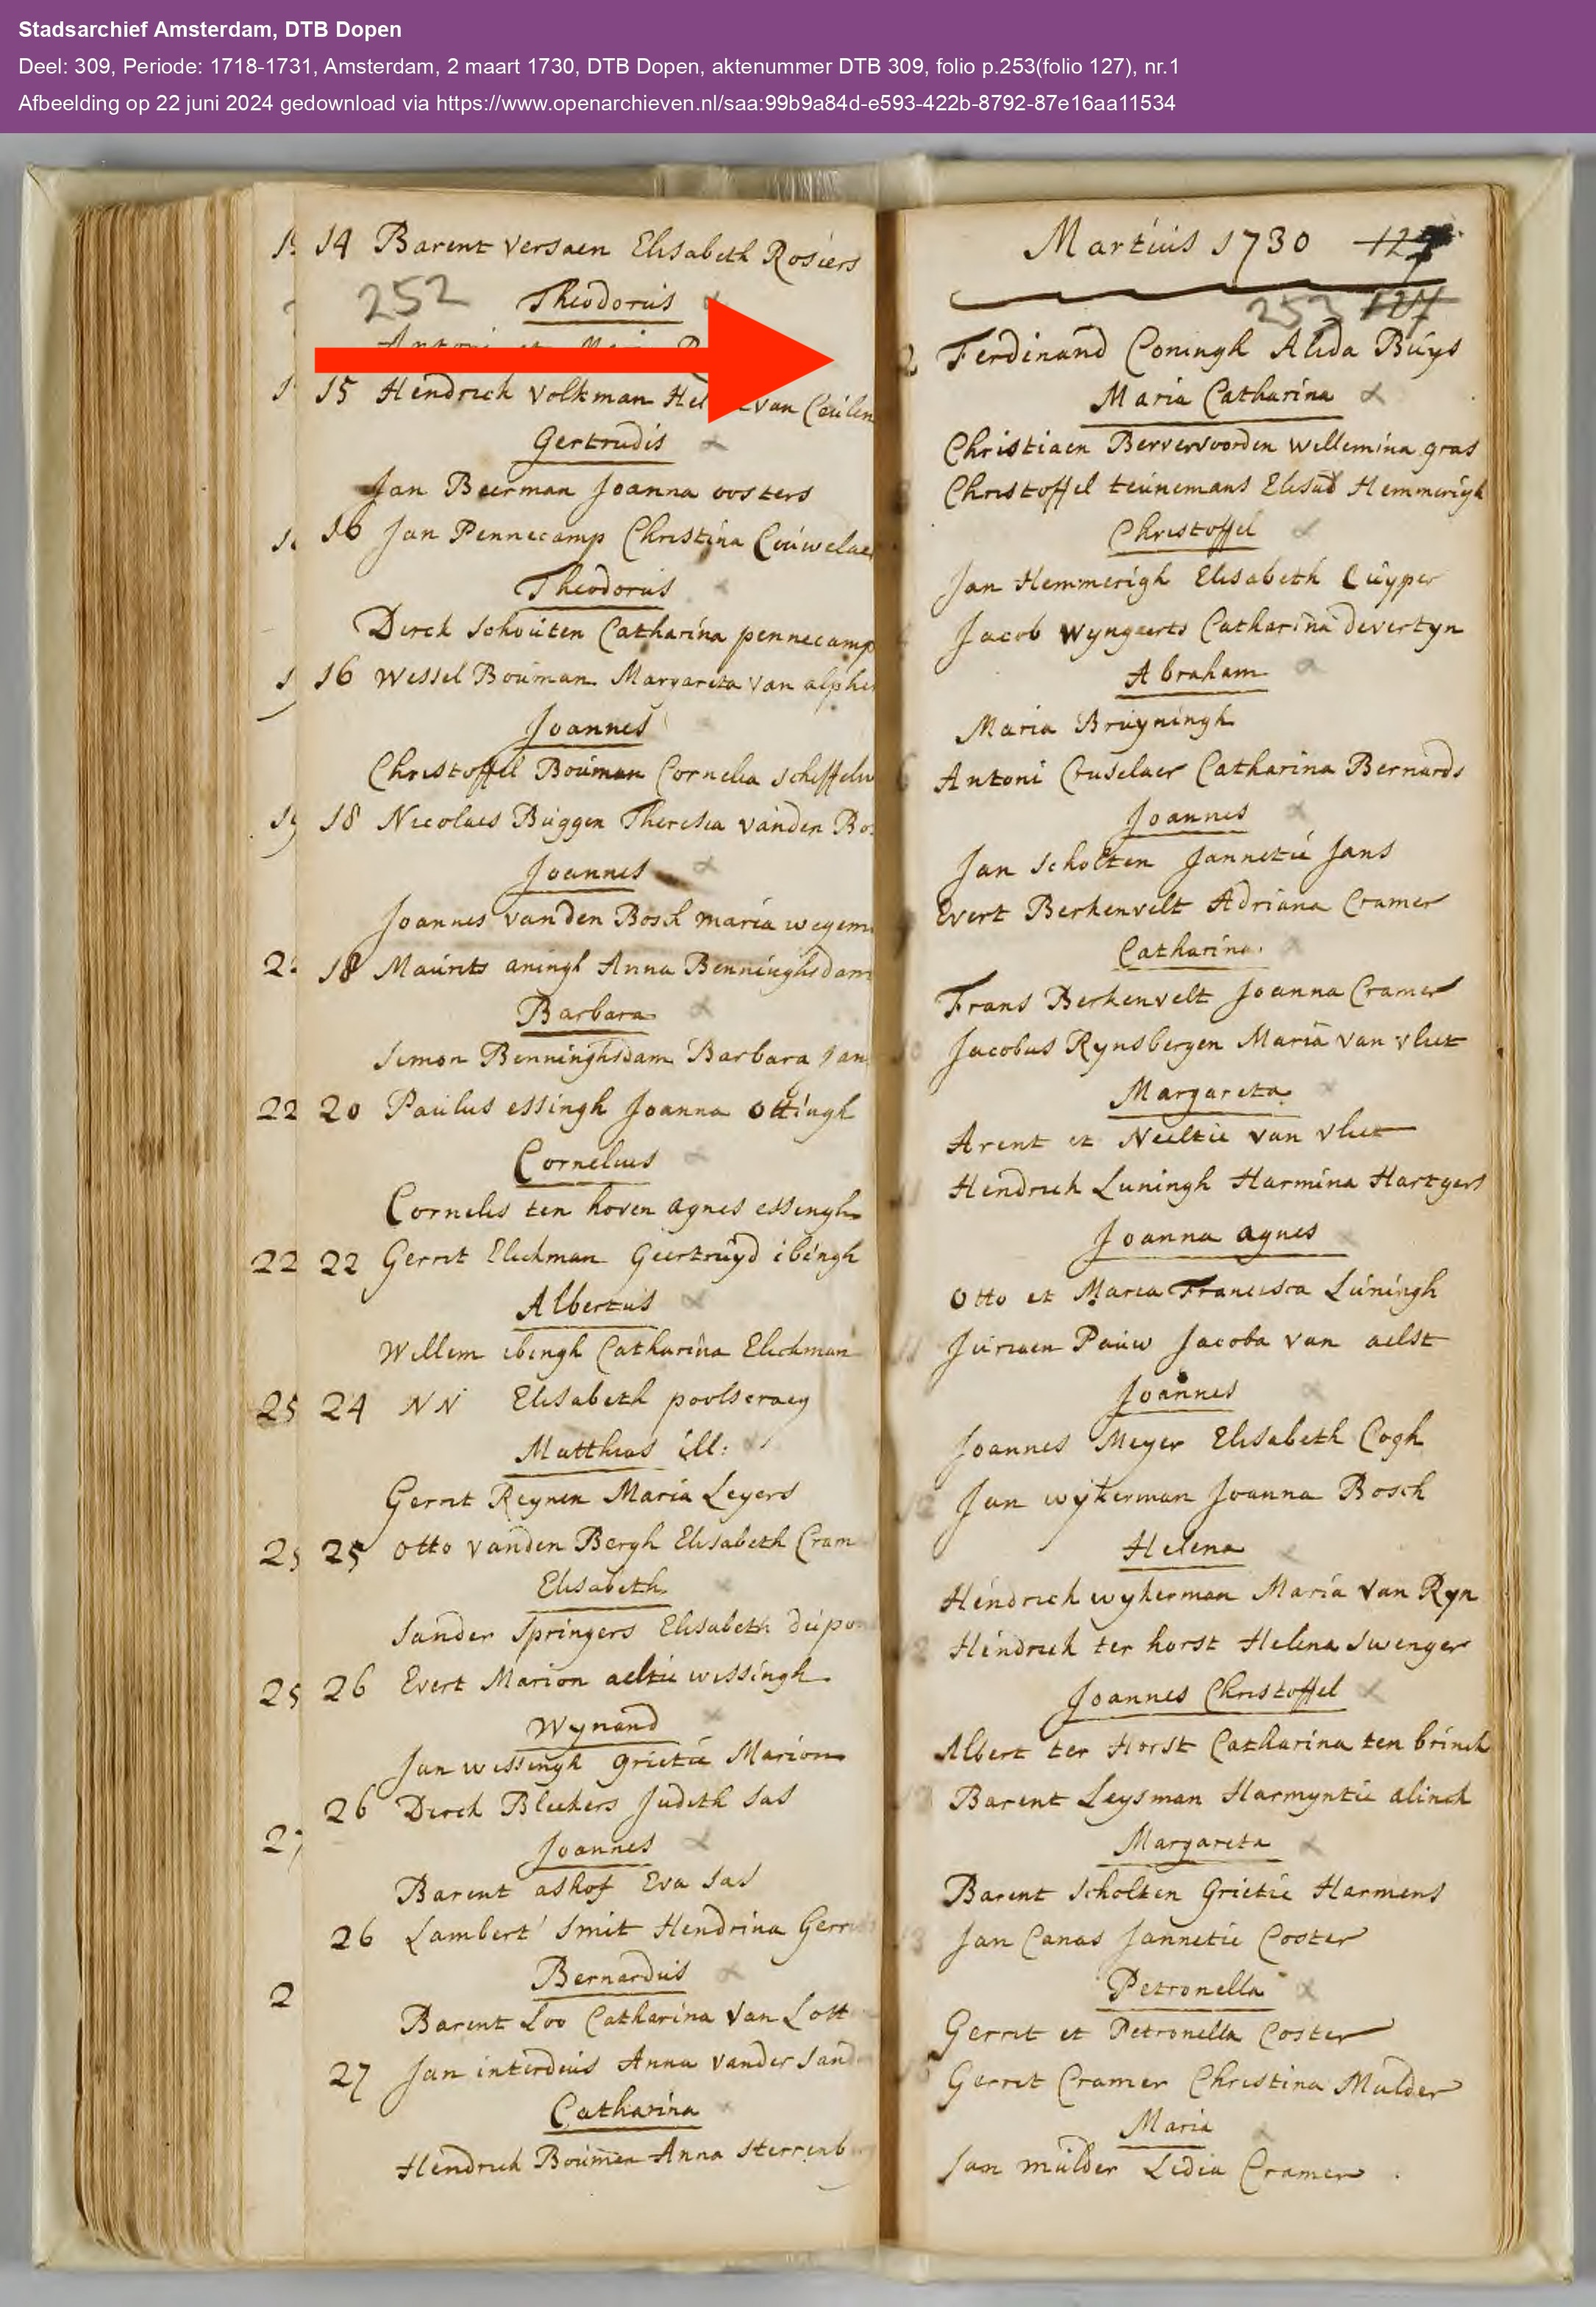 Stadsarchief Amsterdam, DTB Dopen
Deel: 309, Periode: 1718-1731, Amsterdam, 2 maart 1730, DTB Dopen, aktenummer DTB 309, folio p.253(folio 127), nr.1
Afbeelding op 22 juni 2024 gedownload via https://www.openarchieven.nl/saa:99b9a84d-e593-422b-8792-87e16aa11534
14 Barent Versaen Elisabeth Rosiers
252 Theodorus
15 Hendrick Volkman van Ceulen
Gertrudis
Jan Beerman Joanna oosters
16 Jan Pennecamp Christina
Theodorus
Derck Schouten Catharina pennecamp
16 Wessel Bouman Margareta van
Joannes
Christoffel Bouman Cornelia
18 Nicolaes Buggen Theresia vanden
Joannes
Joannes vanden Bosch maria
18 Maurits aningh Anna Benninghsdam
Barbara
Simon Benninghsdam Barbara
22 20 Paulus essingh Joanna Ottingh
Cornelius
Cornelis ten hoven agnes essingh
22 22 Gerrit Elickman Geertruyd ibingh
Albertus
Willem ibingh Catharina Elickman
25 24 NN Elisabeth poolseraey
Matthias ill:
Gerrit Reynen Maria Leyers
25 Otto vanden Bergh Elisabeth
Elisabeth
Sander Springers Elisabeth
25 26 Evert Marion aeltie wissingh
Wynand
Jan wissingh grietie Marion
26 Derck Bleekers Judith Sas
Joannes
Barent ashof Eva Sas
26 Lambert Smit Hendrina
Bernardus
Barent Loo Catharina Van Lott
27 Jan interdeus Anna vander
Catharina
Hendrick Boumea Anna
Martius 1730 127
253 127
2 Ferdinand Coningh Alida Buys
Maria Catharina
Christiaen Bervervoorden Willemina gras
Christoffel teunemans Elisab Hemmerigh
Christoffel
Jan Hemmerigh Elisabeth Cuyper
Jacob Wyngaerts Catharina devertyn
Abraham
Maria Bruyningh
Antoni Cruselaer Catharina Bernards
Joannes
Jan Scholten Jannetie Jans
Evert Berkenvelt Adriana Cramer
Catharina
Frans Berkenvelt Joanna Cramer
Jacobus Rynsbergen Maria van vliet
Margareta
Arent et Neeltie van vliet
Hendrick Luningh Harmina Hartgers
Joanna agnes
Otto et Maria Francisca Luningh
Juriaen Pauw Jacoba van aelst
Joannes
Joannes Meyer Elisabeth Cogh
Jan wykerman Joanna Bosch
Helena
Hendrick wykerman Maria van Ryn
Hendrick ter horst Helena Swenger
Joannes Christoffel
Albert ter Horst Catharina ten brinck
Barent Leysman Harmyntie alinck
Margareta
Barent Scholten Grietie Harmens
Jan Canas Jannetie Coster
Petronella
Gerrit et Petronella Coster
Gerrit Cramer Christina Mulder
Maria
Jan mulder Lidia Cramer